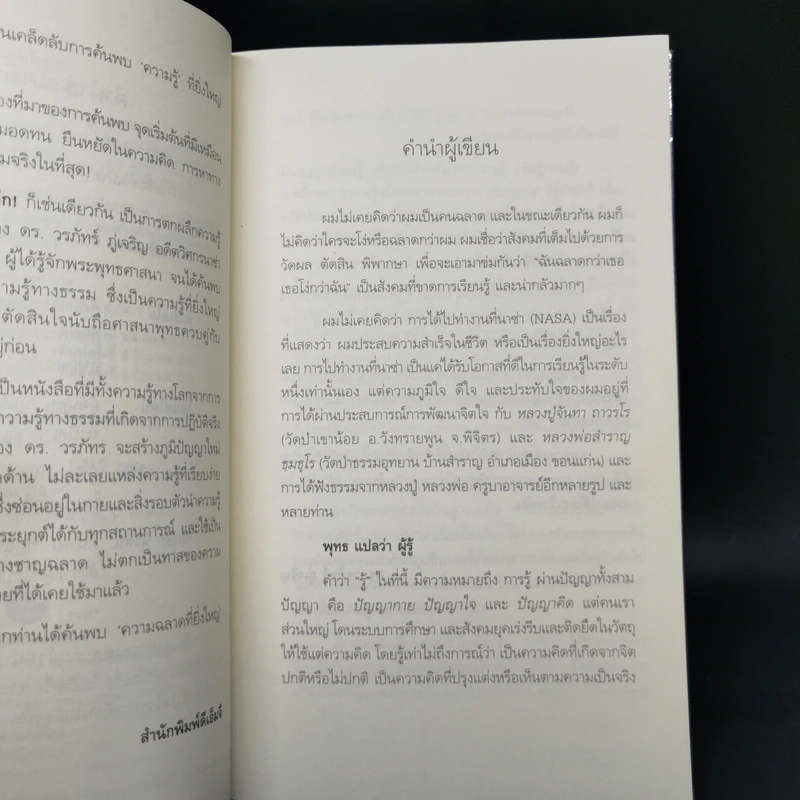 นเคล็ดลับการค้นพบ 'ความรู้' ที่ยิ่งใหญ่
งที่มาของการค้นพบ จุดเริ่มต้นที่มีเหมือน
มอดทน ยืนหยัดในความคิด การหาทาง
มจริงในที่สุด!
ก! ก็เช่นเดียวกัน เป็นการตกผลึกความรู้
ง ดร. วรภัทร์ ภู่เจริญ อดีตวิศกรนาซ่า
ผู้ได้รู้จักพระพุทธศาสนา จนได้ค้นพบ
ามรู้ทางธรรม ซึ่งเป็นความรู้ที่ยิ่งใหญ่
ตัดสินใจนับถือศาสนาพุทธควบคู่กับ
ญ่ก่อน
เป็นหนังสือที่มีทั้งความรู้ทางโลกจากการ
ความรู้ทางธรรมที่เกิดจากการปฏิบัติจริง
ง ดร. วรภัทร จะสร้างภูมิปัญญาใหม่
กด้าน ไม่ละเลยแหล่งความรู้ที่เรียบง่าย
ซึ่งซ่อนอยู่ในกายและสิ่งรอบตัวนำความรู้
ระยุกต์ได้กับทุกสถานการณ์ และใช้เป็น
างชาญฉลาด ไม่ตกเป็นทาสของความ
ยที่ได้เคยใช้มาแล้ว
กท่านได้ค้นพบ 'ความฉลาดที่ยิ่งใหญ่'
สำนักพิมพ์ดีเอ็มจี
คำนำผู้เขียน
ผมไม่เคยคิดว่าผมเป็นคนฉลาด และในขณะเดียวกัน ผมก็
ไม่คิดว่าใครจะโง่หรือฉลาดกว่าผม ผมเชื่อว่าสังคมที่เต็มไปด้วยการ
วัดผล ตัดสิน พิพากษา เพื่อจะเอามาข่มกันว่า "ฉันฉลาดกว่าเธอ
เธอโง่กว่าฉัน" เป็นสังคมที่ขาดการเรียนรู้ และน่ากลัวมากๆ
ผมไม่เคยคิดว่า การได้ไปทำงานที่นาซ่า (NASA) เป็นเรื่อง
ที่แสดงว่า ผมประสบความสำเร็จในชีวิต หรือเป็นเรื่องยิ่งใหญ่อะไร
เลย การไปทำงานที่นาซ่า เป็นแค่ได้รับโอกาสที่ดีในการเรียนรู้ในระดับ
หนึ่งเท่านั้นเอง แต่ความภูมิใจ ดีใจ และประทับใจของผมอยู่ที่
การได้ผ่านประสบการณ์การพัฒนาจิตใจ กับ หลวงปู่จันทา ถาวรโร
(วัดป่าเขาน้อย อ.วังทรายพูน จ.พิจิตร) และ หลวงพ่อสำราญ
ธมฺธุโร (วัดป่าธรรมอุทยาน บ้านสำราญ อำเภอเมือง ขอนแก่น) และ
การได้ฟังธรรมจากหลวงปู่ หลวงพ่อ ครูบาอาจารย์อีกหลายรูป และ
หลายท่าน
พุทธ แปลว่า ผู้รู้
คำว่า "รู้" ในที่นี้ มีความหมายถึง การรู้ ผ่านปัญญาทั้งสาม
ปัญญา คือ ปัญญากาย ปัญญาใจ และ ปัญญาคิด แต่คนเรา
ส่วนใหญ่ โดนระบบการศึกษา และสังคมยุคเร่งรีบและติดยึดในวัตถุ
ให้ใช้แต่ความคิด โดยรู้เท่าไม่ถึงการณ์ว่า เป็นความคิดที่เกิดจากจิต
ปกติหรือไม่ปกติ เป็นความคิดที่ปรุงแต่งหรือเห็นตามความเป็นจริง